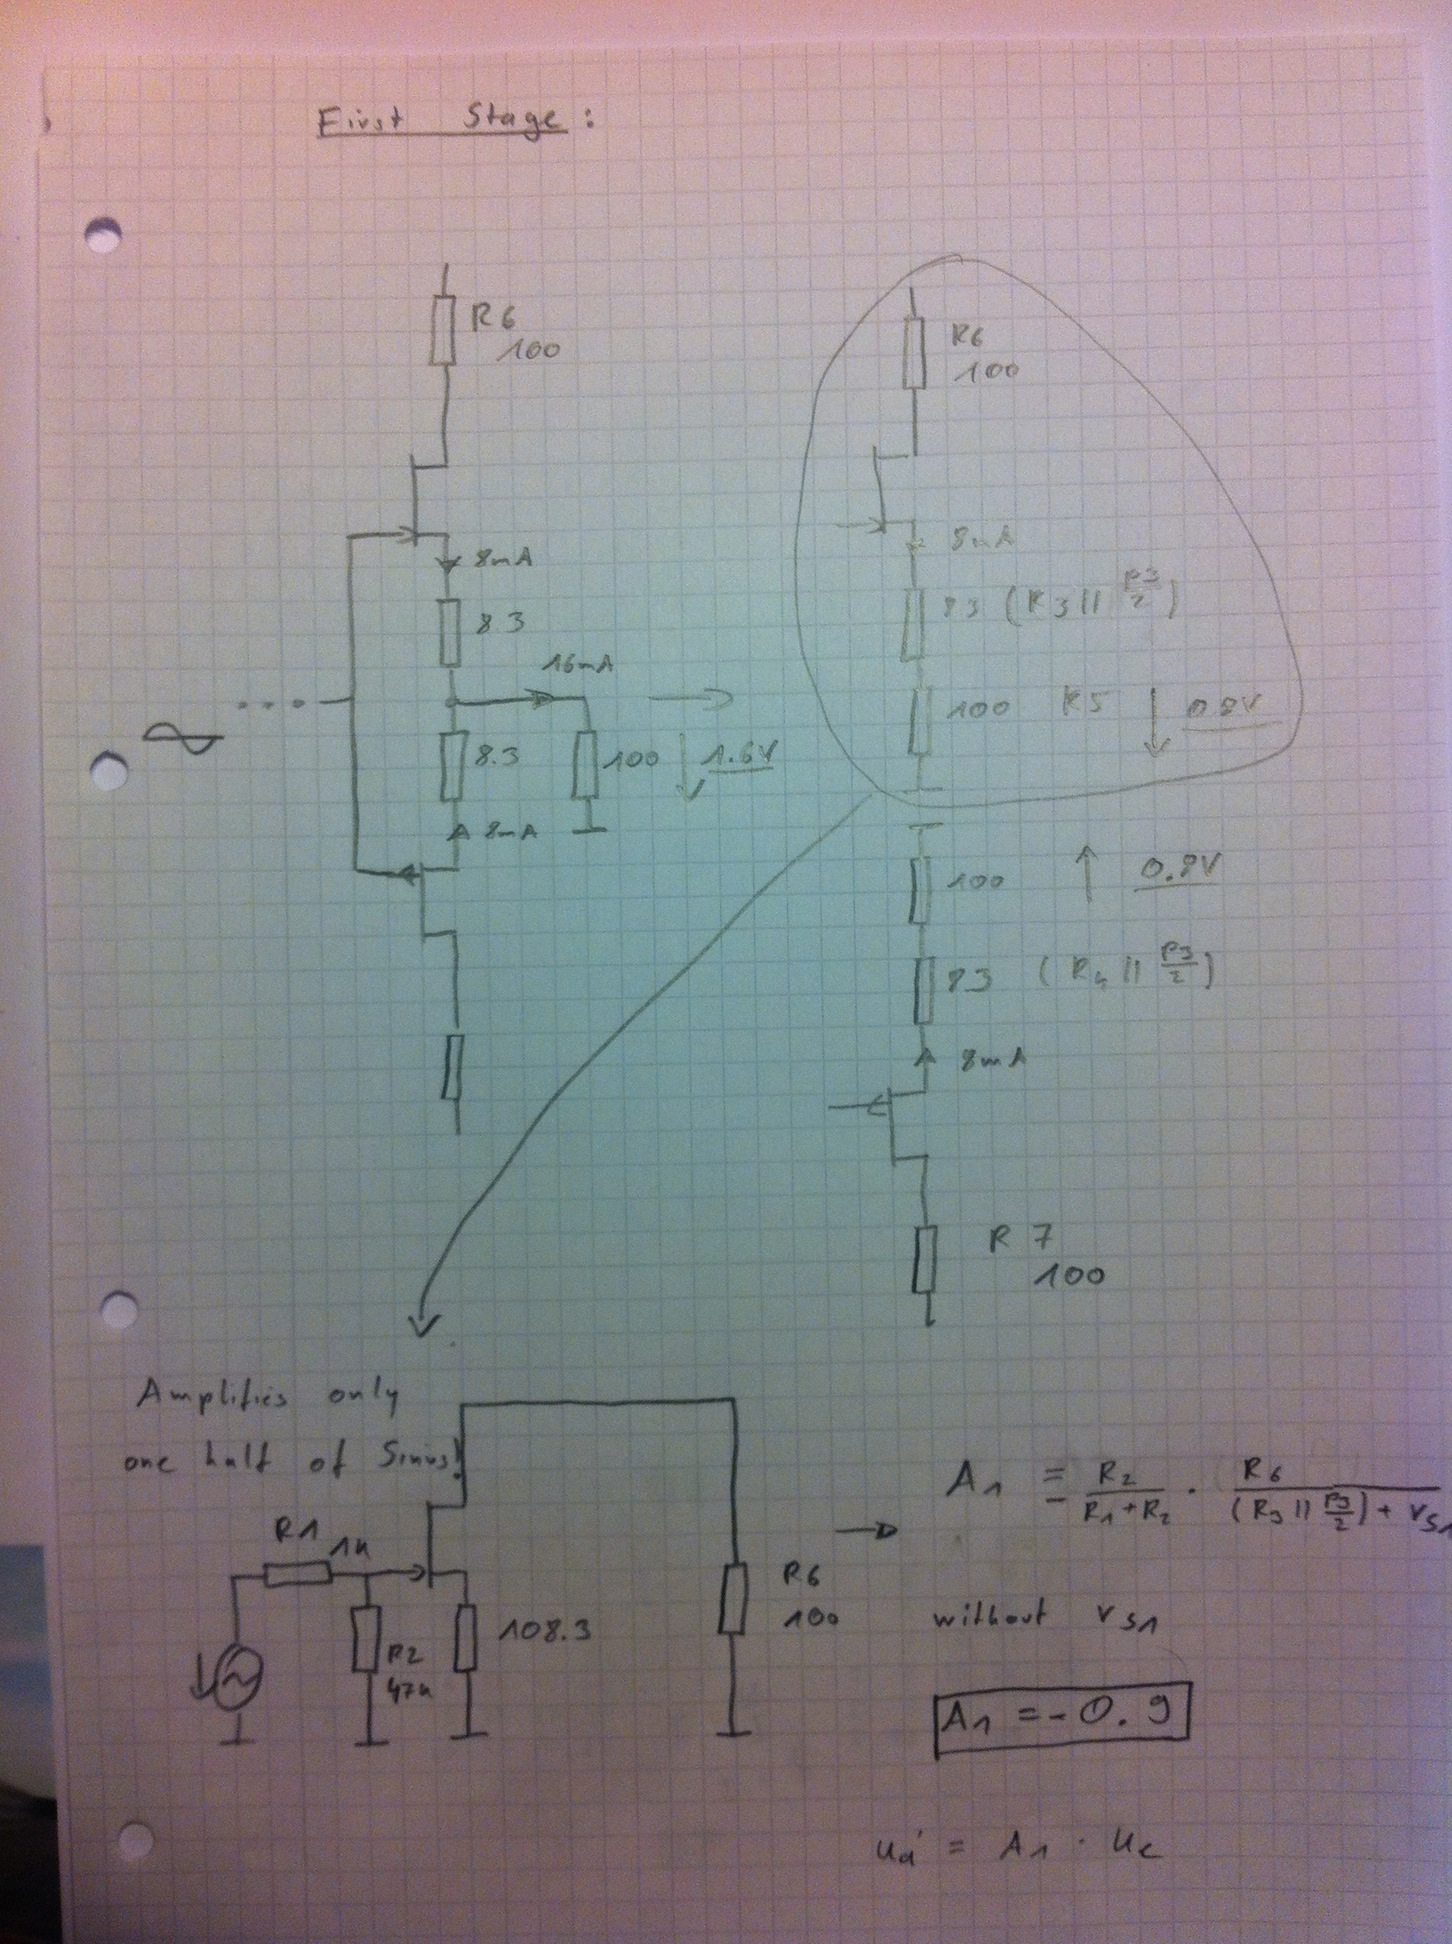 First Stage:
R6
100
8mA
8.3
16mA
8.3
100
1.6V
8mA
R6
100
8mA
83 (R3 || P3/2)
100 R5
0.8V
100
0.8V
83 (R4 || P3/2)
8mA
R7
100
Amplifies only
one half of Sinus!
R1
1k
R2
47k
108.3
R6
100
A1 = - R2/(R1+R2) · R6/((R3 || P3/2) + rS1
without rS1
A1 = -0.9
ua' = A1 · ue